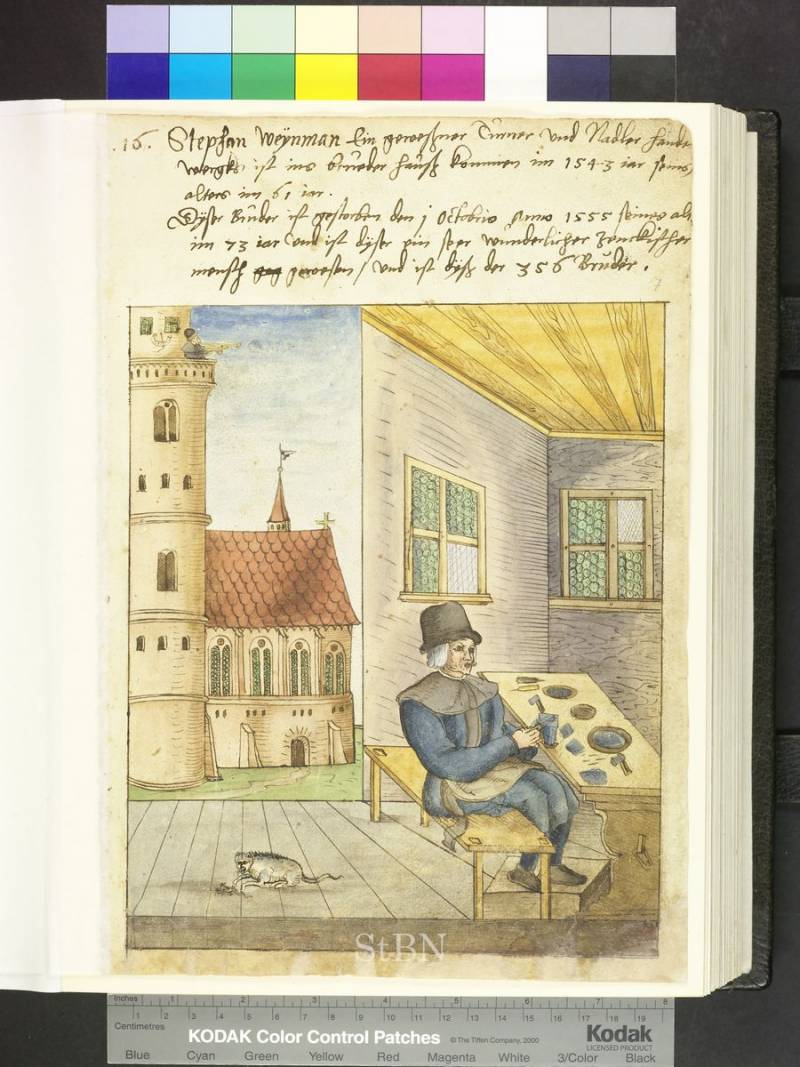 16. Stephan Weÿnman Ein geweßner Türner vnd Nadler handt
wergks, ist ins brueder hauß kommen im 1543 iar seins
alters im 61 iar.
Dÿser Brüder ist gestorben den 1 Octobris Anno 1555 seines alt
im 73 iar vnd ist dÿser ein seer wünderlicher zenckischer
mensch gewesen / vnd ist dÿß der 356 Brüder.
7
StBN
Inches 1 2 3 4 5 6 7 8
Centimetres 1 2 3 4 5 6 7 8 9 10 11 12 13 14 15 16 17 18 19
KODAK Color Control Patches © The Tiffen Company, 2000 Kodak
LICENSED PRODUCT
Blue Cyan Green Yellow Red Magenta White 3/Color Black